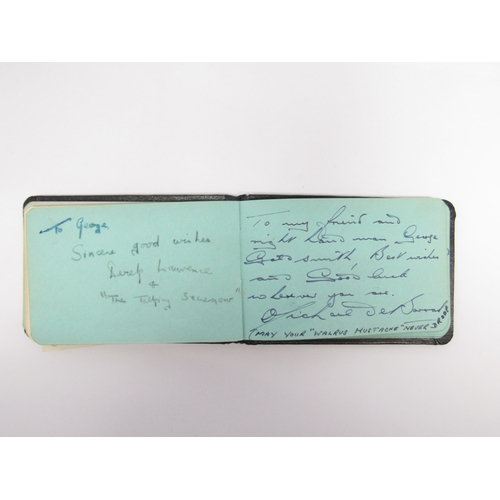 To George
Sincere good wishes
Derek Lawrence
+
"The Talking Scarecrow"
To my friend and
right hand man George
Goldsmith. Best wishes
and Good luck
wherever you are.
Richard
MAY YOUR "WALRUS MUSTACHE" NEVER DROOP